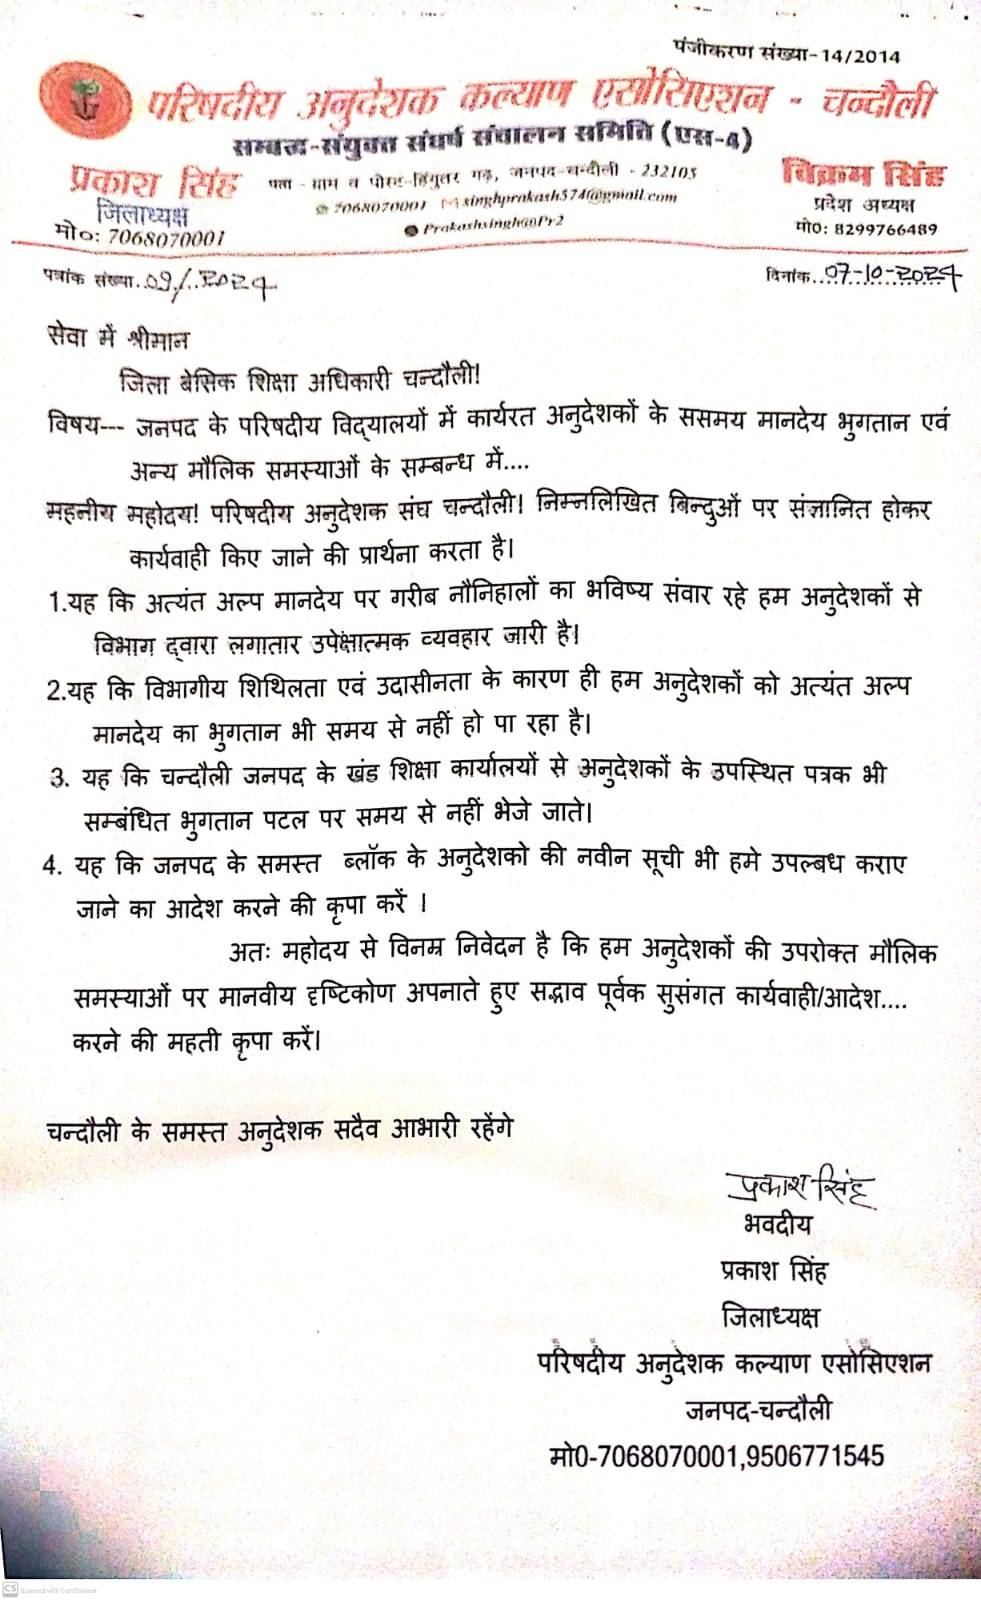 पंजीकरण संख्या-14/2014
परिषदीय अनुदेशक कल्याण एसोसिएशन - चन्दौली
सम्बद्ध-संयुक्त संघर्ष संचालन समिति (एस-4)
प्रकाश सिंह
जिलाध्यक्ष
मो०: 7068070001
पता - ग्राम व पोस्ट-हिंगुतर गढ़, जनपद-चन्दौली - 232105
7068070001 singhprakash574@gmail.com
Prakashsingh@Pr2
विक्रम सिंह
प्रदेश अध्यक्ष
मो0: 8299766489
पत्रांक संख्या..09/..2024
दिनांक....07-10-2024
सेवा में श्रीमान
जिला बेसिक शिक्षा अधिकारी चन्दौली!
विषय--- जनपद के परिषदीय विद्यालयों में कार्यरत अनुदेशकों के ससमय मानदेय भुगतान एवं
अन्य मौलिक समस्याओं के सम्बन्ध में....
महनीय महोदय! परिषदीय अनुदेशक संघ चन्दौली। निम्नलिखित बिन्दुओं पर संज्ञानित होकर
कार्यवाही किए जाने की प्रार्थना करता है।
1.यह कि अत्यंत अल्प मानदेय पर गरीब नौनिहालों का भविष्य संवार रहे हम अनुदेशकों से
विभाग द्वारा लगातार उपेक्षात्मक व्यवहार जारी है।
2.यह कि विभागीय शिथिलता एवं उदासीनता के कारण ही हम अनुदेशकों को अत्यंत अल्प
मानदेय का भुगतान भी समय से नहीं हो पा रहा है।
3. यह कि चन्दौली जनपद के खंड शिक्षा कार्यालयों से अनुदेशकों के उपस्थित पत्रक भी
सम्बंधित भुगतान पटल पर समय से नहीं भेजे जाते।
4. यह कि जनपद के समस्त ब्लॉक के अनुदेशको की नवीन सूची भी हमे उपल्बध कराए
जाने का आदेश करने की कृपा करें ।
अतः महोदय से विनम्र निवेदन है कि हम अनुदेशकों की उपरोक्त मौलिक
समस्याओं पर मानवीय दृष्टिकोण अपनाते हुए सद्भाव पूर्वक सुसंगत कार्यवाही/आदेश....
करने की महती कृपा करें।
चन्दौली के समस्त अनुदेशक सदैव आभारी रहेंगे
प्रकाश सिंह
भवदीय
प्रकाश सिंह
जिलाध्यक्ष
परिषदीय अनुदेशक कल्याण एसोसिएशन
जनपद-चन्दौली
मो0-7068070001,9506771545
CS Scanned with CamScanner